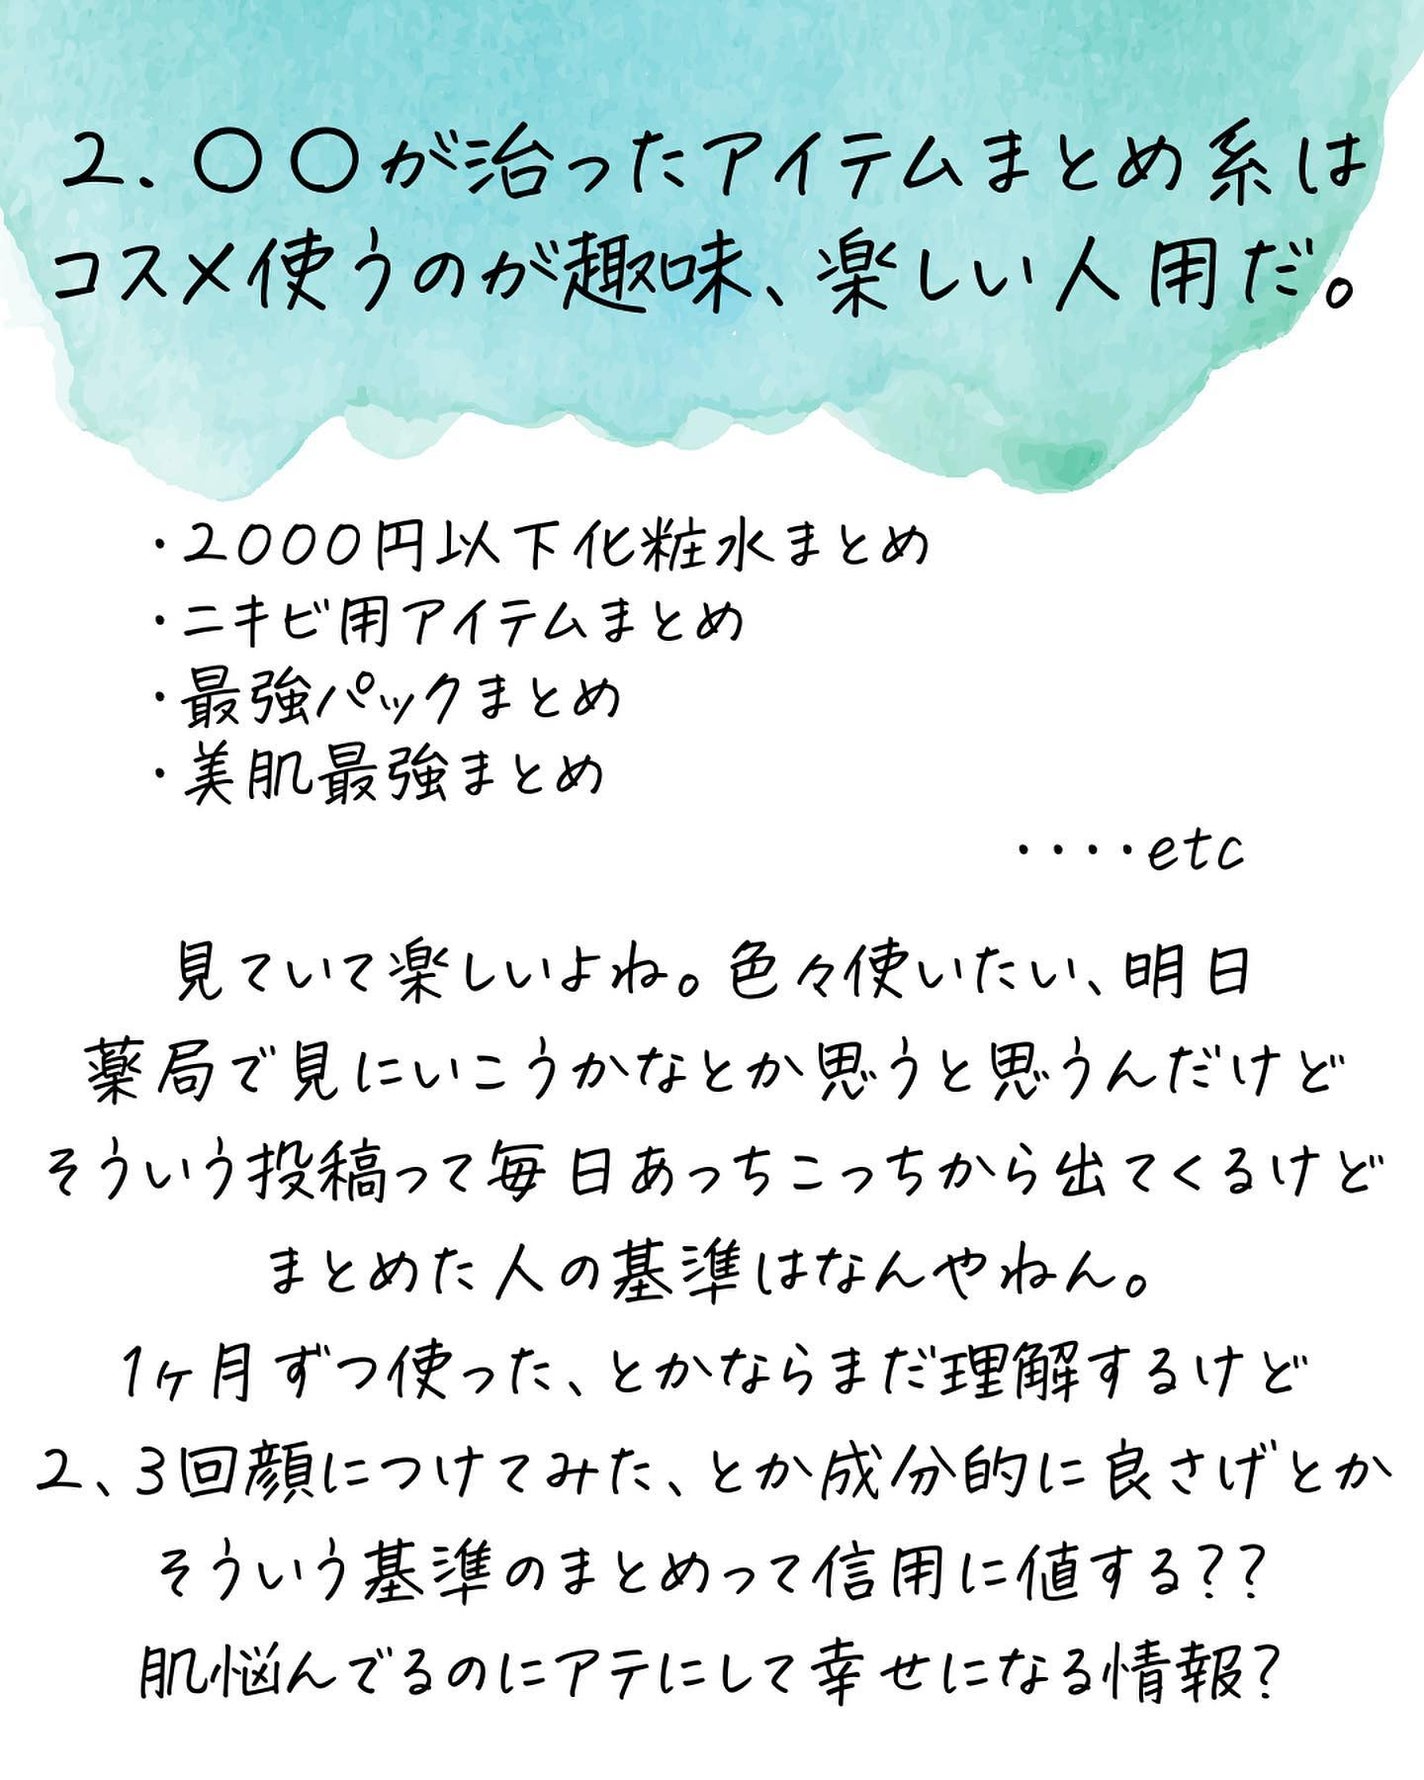 2. 〇〇が治ったアイテムまとめ系は
コスメ使うのが趣味、楽しい人用だ。
・2000円以下化粧水まとめ
・ニキビ用アイテムまとめ
・最強パックまとめ
・美肌最強まとめ
・・・・etc
見ていて楽しいよね。色々使いたい、明日
薬局で見にいこうかなとか思うと思うんだけど
そういう投稿って毎日あっちこっちから出てくるけど
まとめた人の基準はなんやねん。
1ヶ月ずつ使った、とかならまだ理解するけど
2、3回顔につけてみた、とか成分的に良さげとか
そういう基準のまとめって信用に値する??
肌悩んでるのにアテにして幸せになる情報?